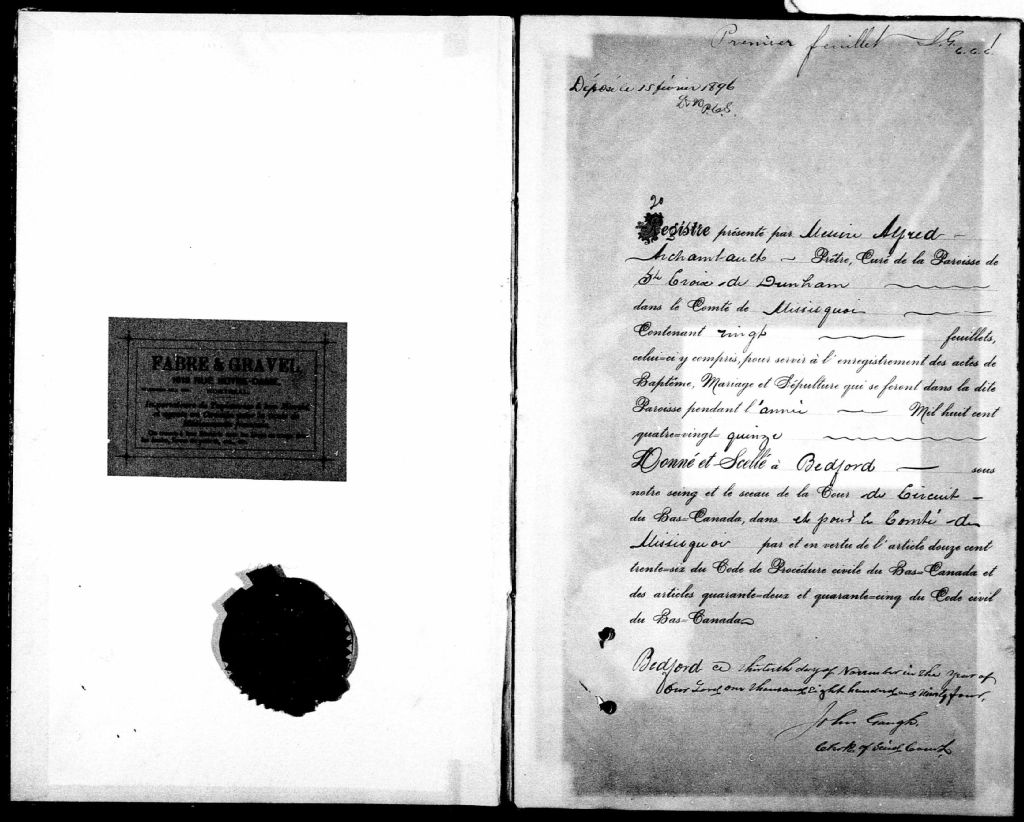 FABRE & GRAVEL,
Premier feuillet J.G. c.c.c.
Déposé ce 15 février 1896
P.C.S.
20
Registre présenté par Messire Alfred
Archambault Prêtre, Curé de la Paroisse de
Ste Croix de Dunham
dans le Comté de Missisquoi
Contenant vingt feuillets,
celui-ci y compris, pour servir à l'enregistrement des actes de
Baptême, Mariage et Sépulture qui se feront dans la dite
Paroisse pendant l'année Mil huit cent
quatre=vingt= quinze
Donné et Scellé à Bedford sous
notre seing et le sceau de la Cour de Circuit
du Bas=Canada, dans et pour le Comté de
Missisquoi par et en vertu de l'article douze cent
trente=six du Code de Procédure civile du Bas=Canada et
des articles quarante=deux et quarante=cinq du Code civil
du Bas=Canada
Bedford ce thirtieth day of November in the year of
Our Lord one thousand eight hundred and ninety four,
John Gough
Clerk of said Court